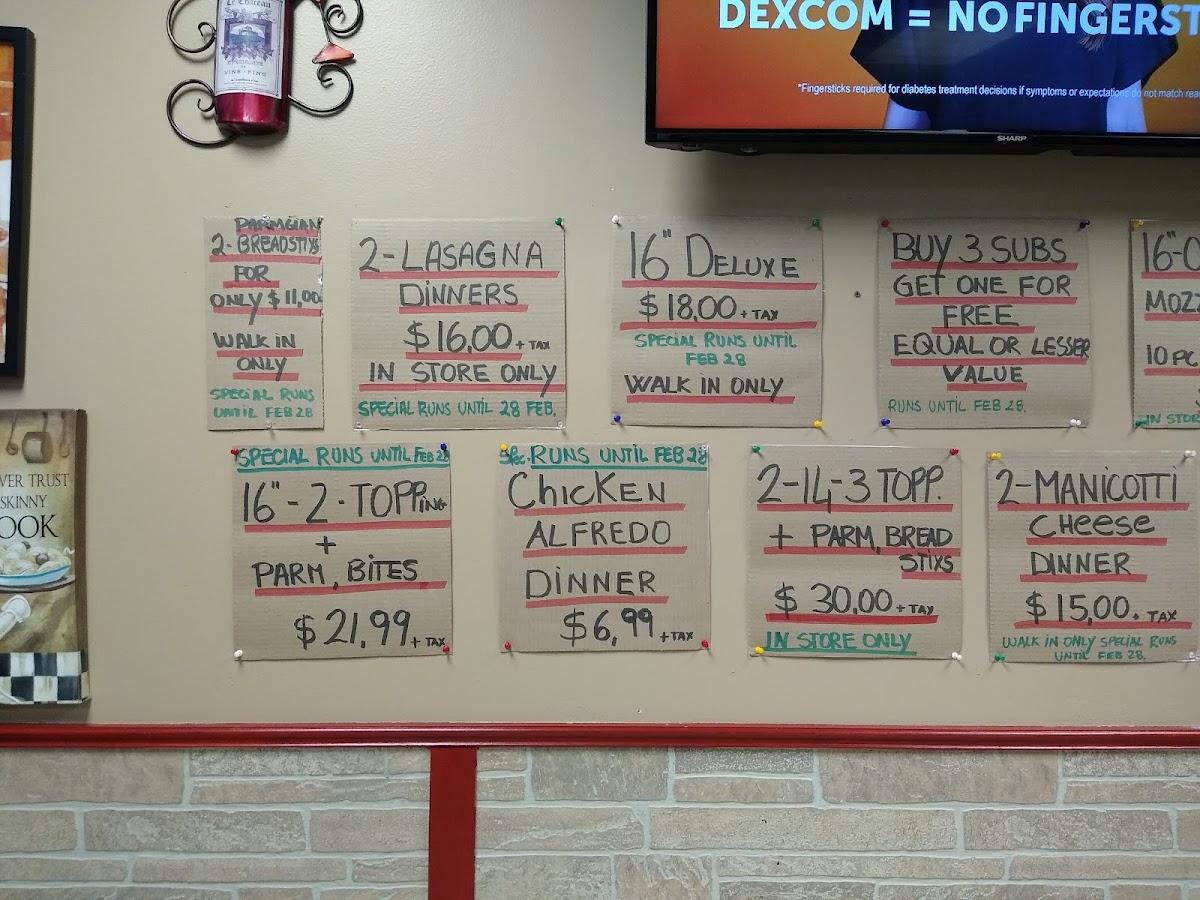 Le Chateau
VINS - FINS
DEXCOM = NO FINGERST
*Fingersticks required for diabetes treatment decisions if symptoms or expectations do not match rea
SHARP
VER TRUST
SKINNY
OOK
PARMGIAN
2-BREADSTIXS
FOR
ONLY $11,00
WALK IN
ONLY
SPECIAL RUNS
UNTIL FEB 28
2-LASAGNA
DINNERS
$16,00 + TAX
IN STORE ONLY
SPECIAL RUNS UNTIL 28 FEB.
16" DELUXE
$18,00 + TAX
SPECIAL RUNS UNTIL
FEB 28
WALK IN ONLY
BUY 3 SUBS
GET ONE FOR
FREE
EQUAL OR LESSER
VALUE
RUNS UNTIL FEB 28.
16"-
MOZZ
10 PC
IN STOR
SPECIAL RUNS UNTIL FEB 28
16"-2-TOPPING
+
PARM, BITES
$21,99 + TAX
SPC. RUNS UNTIL FEB 28
CHICKEN
ALFREDO
DINNER
$6,99 + TAX
2-14-3 TOPP.
+ PARM, BREAD
STIXS
$30,00 + TAX
IN STORE ONLY
2-MANICOTTI
CHEESE
DINNER
$15,00. TAX
WALK IN ONLY SPECIAL RUNS
UNTIL FEB 28.